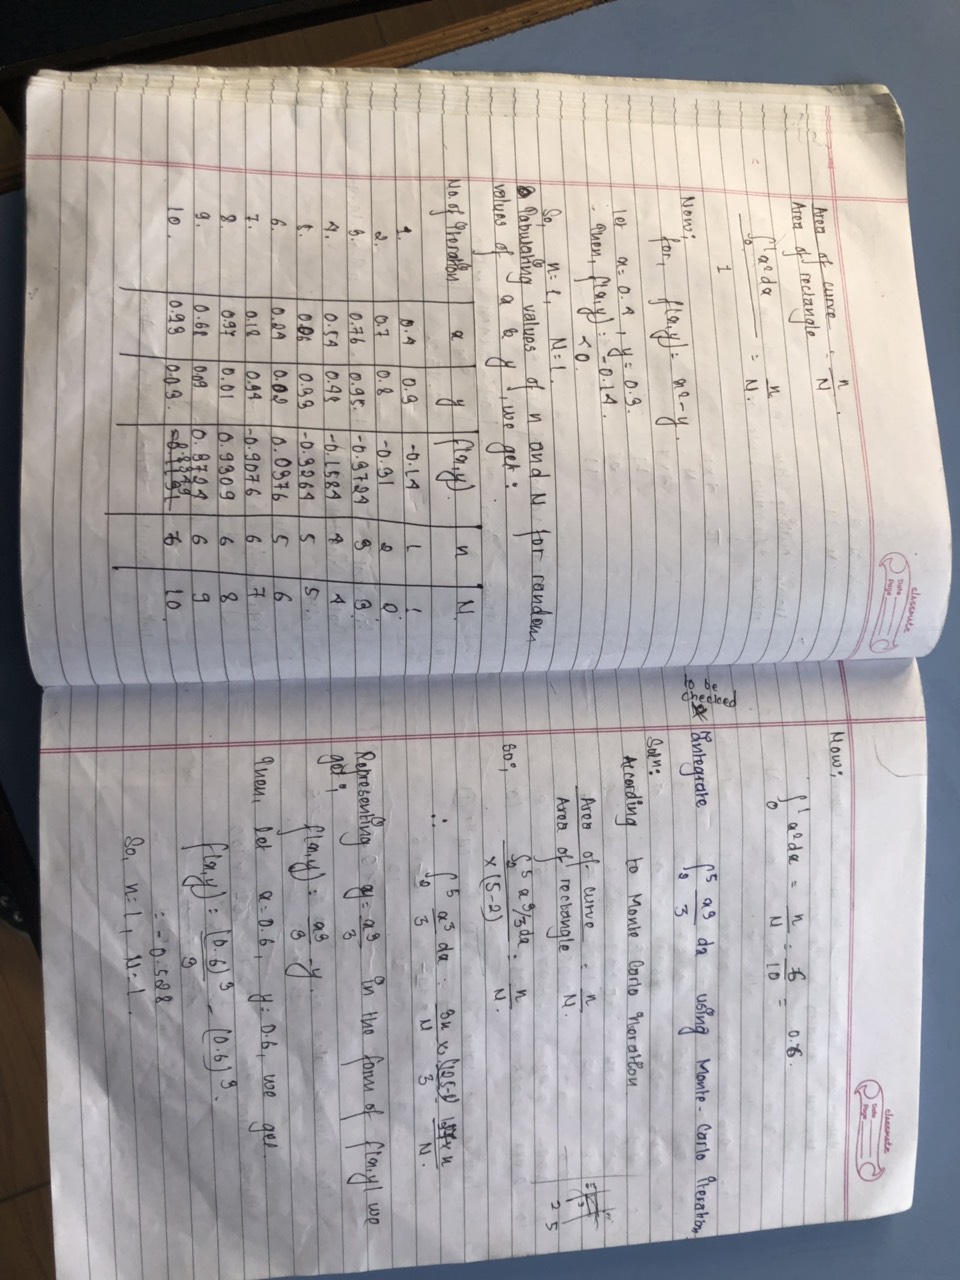 classmate
Date
Page
Area of curve = n
Area of rectangle N
∫₀¹ x²dx = n
1 N.
Now;
for, f(x,y) = x² - y.
Let x = 0.4, y = 0.9.
Then, f(x,y) = -0.14.
< 0.
So, n = 1, N = 1.
Tabulating values of n and N for random
values of x & y, we get:
No. of Iteration x y f(x,y). n N.
1. 0.4 0.9 -0.14 1 1
2. 0.7 0.8 -0.31 2
3. 0.76 0.95. -0.3724 3 3
4. 0.54 0.45 -0.1584 4 4
5. 0.06 0.93 -0.9264 5 5.
6. 0.24 0.02 0.0376 5 6
7. 0.18 0.94 -0.9076 6 7
8. 0.97 0.01 0.9309 6 8
9. 0.68 0.09 0.3724 6 9
10. 0.93 0.09. 6 10.
classmate
Date
Page
Now;
∫₀¹ x²dx = n = 6 = 0.6.
N 10
Integrate ∫₂⁵ x³ dx using Monte-Carlo Iteration
3
Soln:
According to Monte Carlo Iteration
Area of curve = n
Area of rectangle N.
2 5
So;
∫₂⁵ x³/3dx = n
×(5-2) N.
∴ ∫₂⁵ x³ dx =
3
Representing y = x³ in the form of f(x,y) we
3
get;
f(x,y) = x³ - y.
3
Then, let x = 0.6, y = 0.6, we get.
f(x,y) = (0.6)³ - (0.6)³.
3
= -0.528
So, n = 1, N = 1.